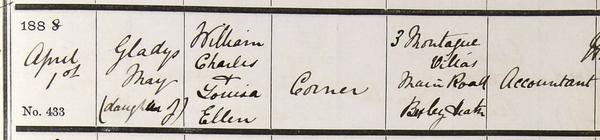 188 8
April
1st
No. 433
Gladys
May
(daughter of)
William
Charles
+
Louisa
Ellen
Corner
3 Montague
Villas
Main Road
Bexley Heath
Accountant